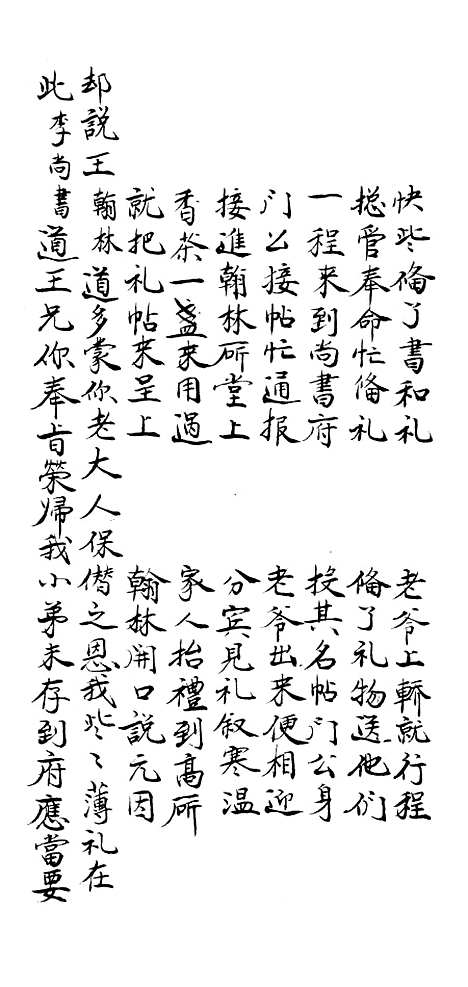 快些俻了書和礼 老爷上轎就行程
揔管奉命忙俻礼 俻了礼物送他们
一程来到尚書府 投其名帖门公身
门公接帖忙通报 老爷出来便相迎
接進翰林所堂上 分宾見礼叙寒温
香茶一盏来用過 家人抬禮到高所
就把礼帖来呈上 翰林開口說元因
却説王翰林道多蒙你老大人保僣之恩我些々薄礼在
此李尚書道王兄你奉旨榮歸我小弟未存到府應當要